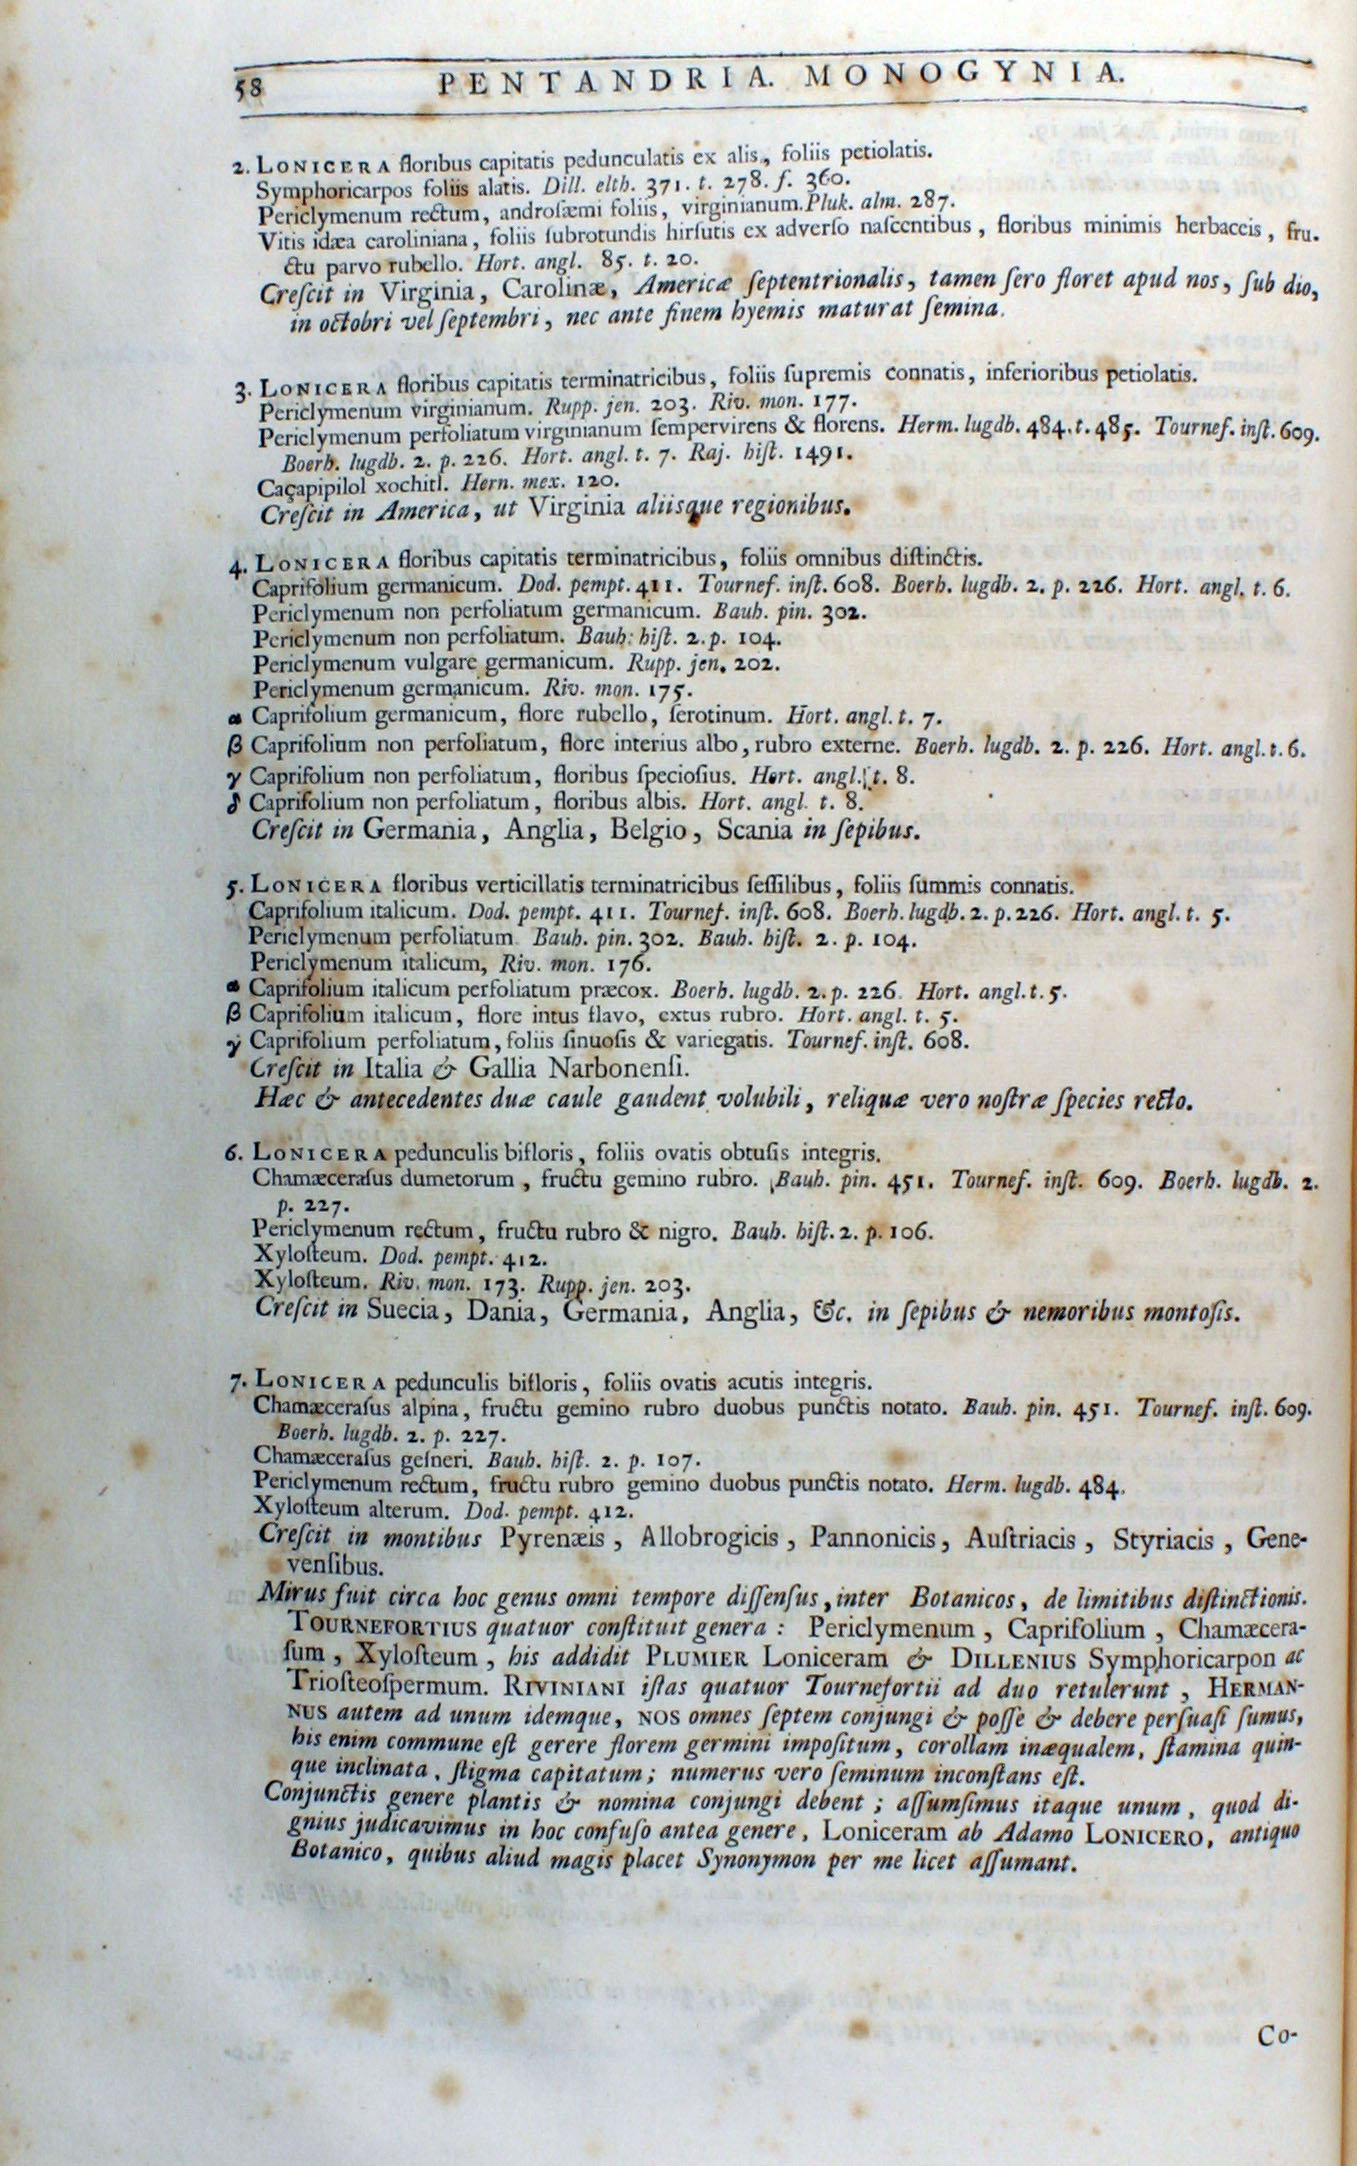 58 PENTANDRIA. MONOGYNIA.
2. LONICERA floribus capitatis pedunculatis ex alis, foliis petiolatis.
Symphoricarpos foliis alatis. Dill. elth. 371. t. 278. f. 360.
Periclymenum rectum, androſæmi foliis, virginianum. Pluk. alm. 287.
Vitis idæa caroliniana, foliis ſubrotundis hirſutis ex adverſo naſcentibus, floribus minimis herbaceis, fru-
ctu parvo rubello. Hort. angl. 85. t. 20.
Creſcit in Virginia, Carolinæ, Americæ ſeptentrionalis, tamen ſero floret apud nos, ſub dio,
in octobri vel ſeptembri, nec ante finem hyemis maturat ſemina.
3. LONICERA floribus capitatis terminatricibus, foliis ſupremis connatis, inferioribus petiolatis.
Periclymenum virginianum. Rupp. jen. 203. Riv. mon. 177.
Periclymenum perfoliatum virginianum ſempervirens & florens. Herm. lugdb. 484. t. 485. Tournef. inſt. 609.
Boerh. lugdb. 2. p. 226. Hort. angl. t. 7. Raj. hiſt. 1491.
Caçapipilol xochitl. Hern. mex. 120.
Creſcit in America, ut Virginia aliisque regionibus.
4. LONICERA floribus capitatis terminatricibus, foliis omnibus diſtinctis.
Caprifolium germanicum. Dod. pempt. 411. Tournef. inſt. 608. Boerh. lugdb. 2. p. 226. Hort. angl. t. 6.
Periclymenum non perfoliatum germanicum. Bauh. pin. 302.
Periclymenum non perfoliatum. Bauh. hiſt. 2. p. 104.
Periclymenum vulgare germanicum. Rupp. jen. 202.
Periclymenum germanicum. Riv. mon. 175.
α Caprifolium germanicum, flore rubello, ſerotinum. Hort. angl. t. 7.
β Caprifolium non perfoliatum, flore interius albo, rubro externe. Boerh. lugdb. 2. p. 226. Hort. angl. t. 6.
γ Caprifolium non perfoliatum, floribus ſpecioſius. Hort. angl. t. 8.
δ Caprifolium non perfoliatum, floribus albis. Hort. angl. t. 8.
Creſcit in Germania, Anglia, Belgio, Scania in ſepibus.
5. LONICERA floribus verticillatis terminatricibus ſeſſilibus, foliis ſummis connatis.
Caprifolium italicum. Dod. pempt. 411. Tournef. inſt. 608. Boerh. lugdb. 2. p. 226. Hort. angl. t. 5.
Periclymenum perfoliatum. Bauh. pin. 302. Bauh. hiſt. 2. p. 104.
Periclymenum italicum, Riv. mon. 176.
α Caprifolium italicum perfoliatum præcox. Boerh. lugdb. 2. p. 226. Hort. angl. t. 5.
β Caprifolium italicum, flore intus flavo, extus rubro. Hort. angl. t. 5.
γ Caprifolium perfoliatum, foliis ſinuoſis & variegatis. Tournef. inſt. 608.
Creſcit in Italia & Gallia Narbonenſi.
Hæc & antecedentes duæ caule gaudent volubili, reliquæ vero noſtræ ſpecies recto.
6. LONICERA pedunculis bifloris, foliis ovatis obtuſis integris.
Chamæceraſus dumetorum, fructu gemino rubro. Bauh. pin. 451. Tournef. inſt. 609. Boerh. lugdb. 2.
p. 227.
Periclymenum rectum, fructu rubro & nigro. Bauh. hiſt. 2. p. 106.
Xyloſteum. Dod. pempt. 412.
Xyloſteum. Riv. mon. 173. Rupp. jen. 203.
Creſcit in Suecia, Dania, Germania, Anglia, &c. in ſepibus & nemoribus montoſis.
7. LONICERA pedunculis bifloris, foliis ovatis acutis integris.
Chamæceraſus alpina, fructu gemino rubro duobus punctis notato. Bauh. pin. 451. Tournef. inſt. 609.
Boerh. lugdb. 2. p. 227.
Chamæceraſus geſneri. Bauh. hiſt. 2. p. 107.
Periclymenum rectum, fructu rubro gemino duobus punctis notato. Herm. lugdb. 484.
Xyloſteum alterum. Dod. pempt. 412.
Creſcit in montibus Pyrenæis, Allobrogicis, Pannonicis, Auſtriacis, Styriacis, Gene-
venſibus.
Mirus fuit circa hoc genus omni tempore diſſenſus, inter Botanicos, de limitibus diſtinctionis.
TOURNEFORTIUS quatuor conſtituit genera: Periclymenum, Caprifolium, Chamæcera-
ſum, Xyloſteum, his addidit PLUMIER Loniceram & DILLENIUS Symphoricarpon ac
Trioſteoſpermum. RIVINIANI iſtas quatuor Tournefortii ad duo retulerunt, HERMAN-
NUS autem ad unum idemque, NOS omnes ſeptem conjungi & poſſe & debere perſuaſi ſumus,
his enim commune eſt gerere florem germini impoſitum, corollam inæqualem, ſtamina quin-
que inclinata, ſtigma capitatum; numerus vero ſeminum inconſtans eſt.
Conjunctis genere plantis & nomina conjungi debent; aſſumſimus itaque unum, quod di-
gnius judicavimus in hoc confuſo antea genere, Loniceram ab Adamo LONICERO, antiquo
Botanico, quibus aliud magis placet Synonymon per me licet aſſumant.
Co-